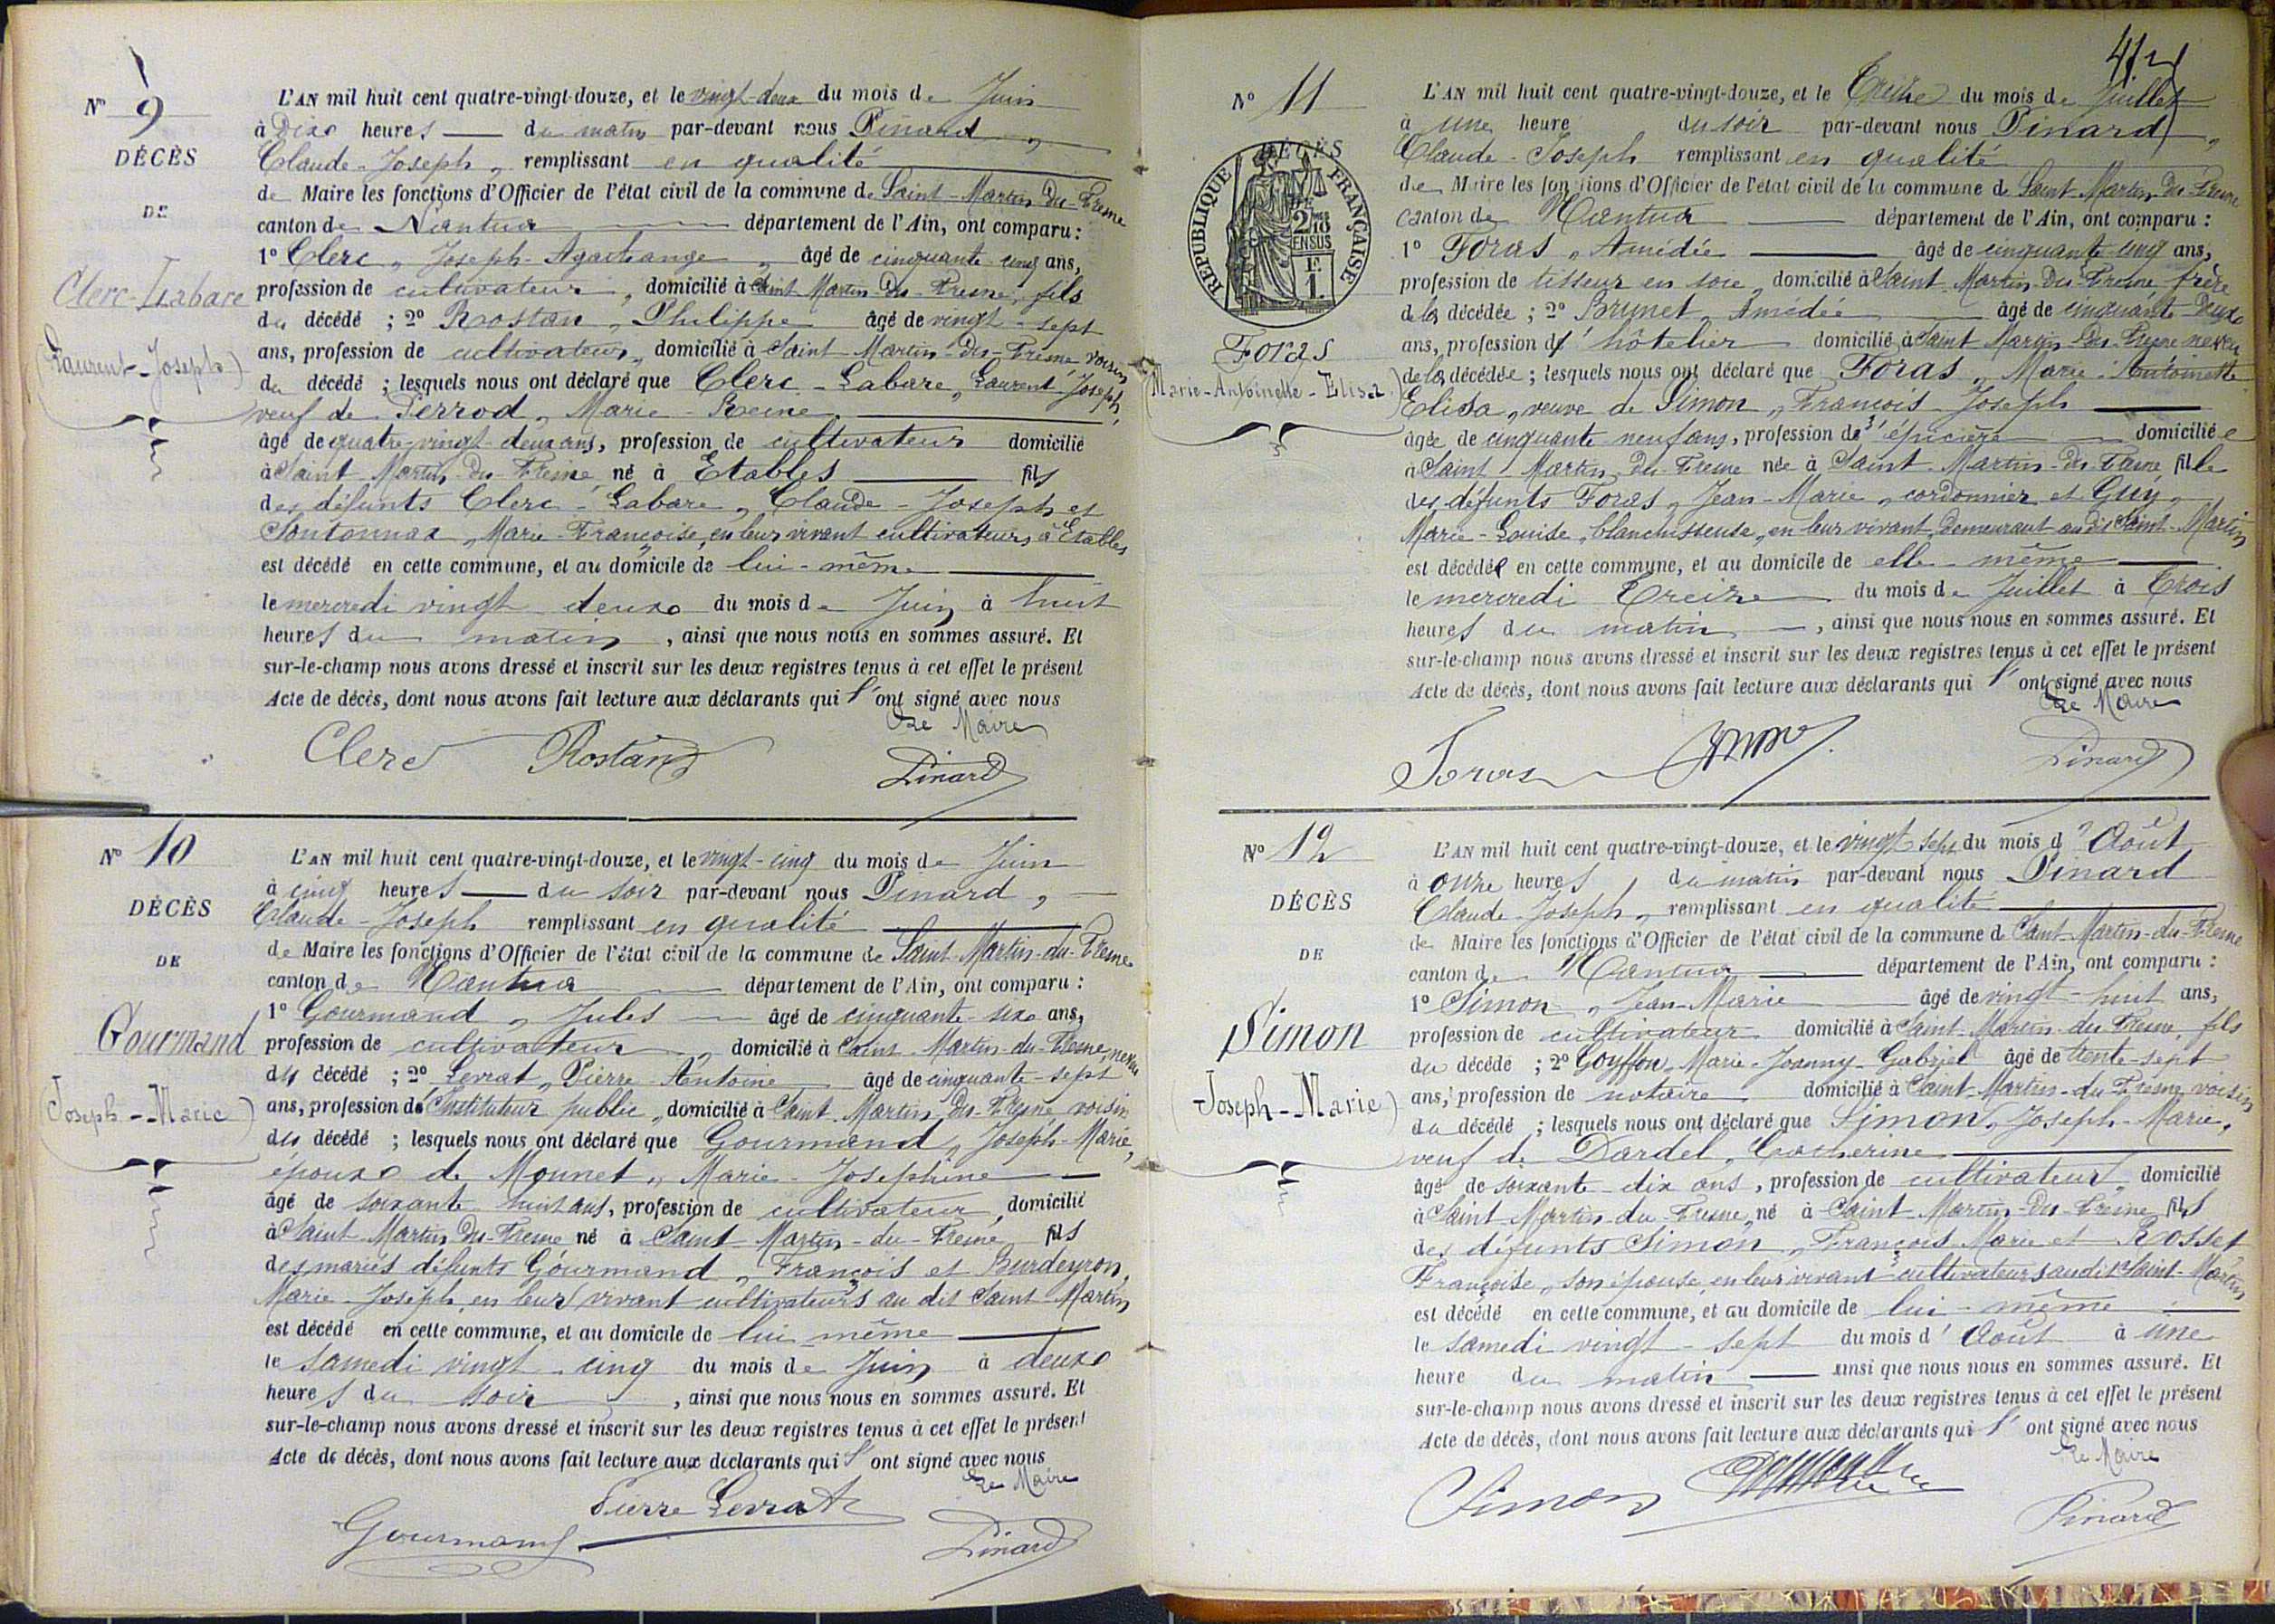 N° 9
DÉCÈS
DE
Clerc-Labare
(Laurent-Joseph)
L'AN mil huit cent quatre-vingt-douze, et le vingt-deux du mois de Juin
à Dix heures du matin par-devant nous Pinard,
Claude-Joseph, remplissant en qualité
de Maire les fonctions d'Officier de l'état civil de la commune de Saint-Martin-Du-Fresne
canton de Nantua département de l'Ain, ont comparu :
1° Clerc, Joseph-Agathange, âgé de cinquante-cinq ans,
profession de cultivateur, domicilié à Saint Martin-Du-Fresne, fils
du décédé ; 2° Rostan, Philippe âgé de vingt-sept
ans, profession de cultivateur, domicilié à Saint-Martin-Du-Fresne voisin
du décédé ; lesquels nous ont déclaré que Clerc-Labare, Laurent-Joseph,
veuf de Perrod, Marie-Reine,
âgé de quatre-vingt-deux ans, profession de cultivateur domicilié
à Saint Martin-Du-Fresne né à Etables fils
des défunts Clerc-Labare, Claude-Joseph et
Santonnax, Marie-Françoise, en leur vivant cultivateurs à Etables
est décédé en cette commune, et au domicile de lui-même
le mercredi vingt deux du mois de Juin à huit
heures du matin, ainsi que nous nous en sommes assuré. Et
sur-le-champ nous avons dressé et inscrit sur les deux registres tenus à cet effet le présent
Acte de décès, dont nous avons fait lecture aux déclarants qui l'ont signé avec nous
Le Maire
Clerc Rostan Pinard
N° 10
DÉCÈS
DE
Gourmand
(Joseph-Marie)
L'AN mil huit cent quatre-vingt-douze, et le vingt-cinq du mois de Juin
à cinq heures du soir par-devant nous Pinard,
Claude-Joseph remplissant en qualité
de Maire les fonctions d'Officier de l'état civil de la commune de Saint-Martin-du-Fresne
canton de Nantua département de l'Ain, ont comparu :
1° Gourmand, Jules âgé de cinquante-six ans,
profession de cultivateur, domicilié à Saint-Martin-du-Fresne, neveu
du décédé ; 2° Levrat, Pierre-Antoine âgé de cinquante-sept
ans, profession d'Instituteur public, domicilié à Saint-Martin-Du-Fresne voisin
du décédé ; lesquels nous ont déclaré que Gourmand, Joseph-Marie,
époux de Monnet, Marie-Josephine
âgé de soixante huit ans, profession de cultivateur, domicilié
à Saint-Martin-Du-Fresne né à Saint-Martin-du-Fresne fils
des mariés défunts Gourmand, François et Burdeyron,
Marie-Joseph, en leur vivant cultivateurs au dit Saint-Martin
est décédé en cette commune, et au domicile de lui même
le samedi vingt-cinq du mois de Juin à deux
heures du soir, ainsi que nous nous en sommes assuré. Et
sur-le-champ nous avons dressé et inscrit sur les deux registres tenus à cet effet le présent
Acte de décès, dont nous avons fait lecture aux déclarants qui l'ont signé avec nous
Le Maire
Pierre Levrat
Gourmand Pinard
N° 11
DÉCÈS
DE
RÉPUBLIQUE FRANÇAISE
2/10 EN SUS
F. 1.
Foras
(Marie-Antoinette-Elisa)
L'AN mil huit cent quatre-vingt-douze, et le Treize du mois de Juillet
à une heure du soir par-devant nous Pinard,
Claude-Joseph remplissant en qualité
de Maire les fonctions d'Officier de l'état civil de la commune de Saint-Martin-Du-Fresne
canton de Nantua département de l'Ain, ont comparu :
1° Foras, Amédée âgé de cinquante-cinq ans,
profession de tisseur en soie, domicilié à Saint Martin-Du-Fresne frère
de la décédée ; 2° Brunet, Amédée âgé de cinquante-Deux
ans, profession d'hôtelier domicilié à Saint Martin-Du-Fresne neveu
de la décédée ; lesquels nous ont déclaré que Foras, Marie-Antoinette
Elisa, veuve de Simon, François-Joseph
âgée de cinquante neuf ans, profession d'épicière domiciliée
à Saint Martin-Du-Fresne née à Saint-Martin-Du-Fresne fille
des défunts Foras, Jean-Marie, cordonnier et Guy,
Marie-Louise, blanchisseuse, en leur vivant, demeurant au dit Saint-Martin
est décédée en cette commune, et au domicile de elle-même
le mercredi Treize du mois de Juillet à Trois
heures du matin, ainsi que nous nous en sommes assuré. Et
sur-le-champ nous avons dressé et inscrit sur les deux registres tenus à cet effet le présent
Acte de décès, dont nous avons fait lecture aux déclarants qui l'ont signé avec nous
Le Maire
Foras Pinard
N° 12
DÉCÈS
DE
Simon
(Joseph-Marie)
L'AN mil huit cent quatre-vingt-douze, et le vingt sept du mois d'Août
à onze heures du matin par-devant nous Pinard
Claude-Joseph, remplissant en qualité
de Maire les fonctions d'Officier de l'état civil de la commune d Saint-Martin-du-Fresne
canton de Nantua département de l'Ain, ont comparu :
1° Simon, Jean-Marie âgé de vingt-huit ans,
profession de cultivateur domicilié à Saint-Martin-du-Fresne, fils
du décédé ; 2° Gouffon, Marie-Joanny-Gabriel âgé de trente-sept
ans, profession de notaire domicilié à Saint-Martin-du-Fresne, voisin
du décédé ; lesquels nous ont déclaré que Simon, Joseph-Marie,
veuf de Dardel, Catherine
âgé de soixante-dix ans, profession de cultivateur, domicilié
à Saint Martin-du-Fresne, né à Saint-Martin-Du-Fresne, fils
des défunts Simon, François-Marie et Rosset
Françoise, son épouse, en leur vivant cultivateurs audit Saint-Martin
est décédé en cette commune, et au domicile de lui-même
le samedi vingt-sept du mois d'Août à une
heure du matin ainsi que nous nous en sommes assuré. Et
sur-le-champ nous avons dressé et inscrit sur les deux registres tenus à cet effet le présent
Acte de décès, dont nous avons fait lecture aux déclarants qui l'ont signé avec nous
Le Maire
Simon Pinard